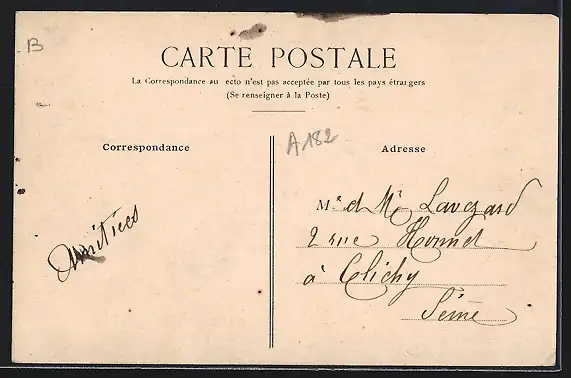 B
CARTE POSTALE
La Correspondance au ecto n'est pas acceptée par tous les pays étrargers
(Se renseigner à la Poste)
A182
Correspondance
Adresse
Amitiées
Mr et Me
2 rue
à Clichy
Seine